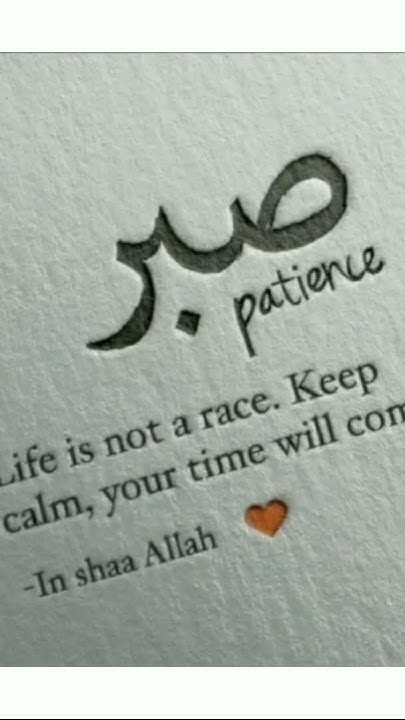 صبر
patience
Life is not a race. Keep
calm, your time will com
-In shaa Allah